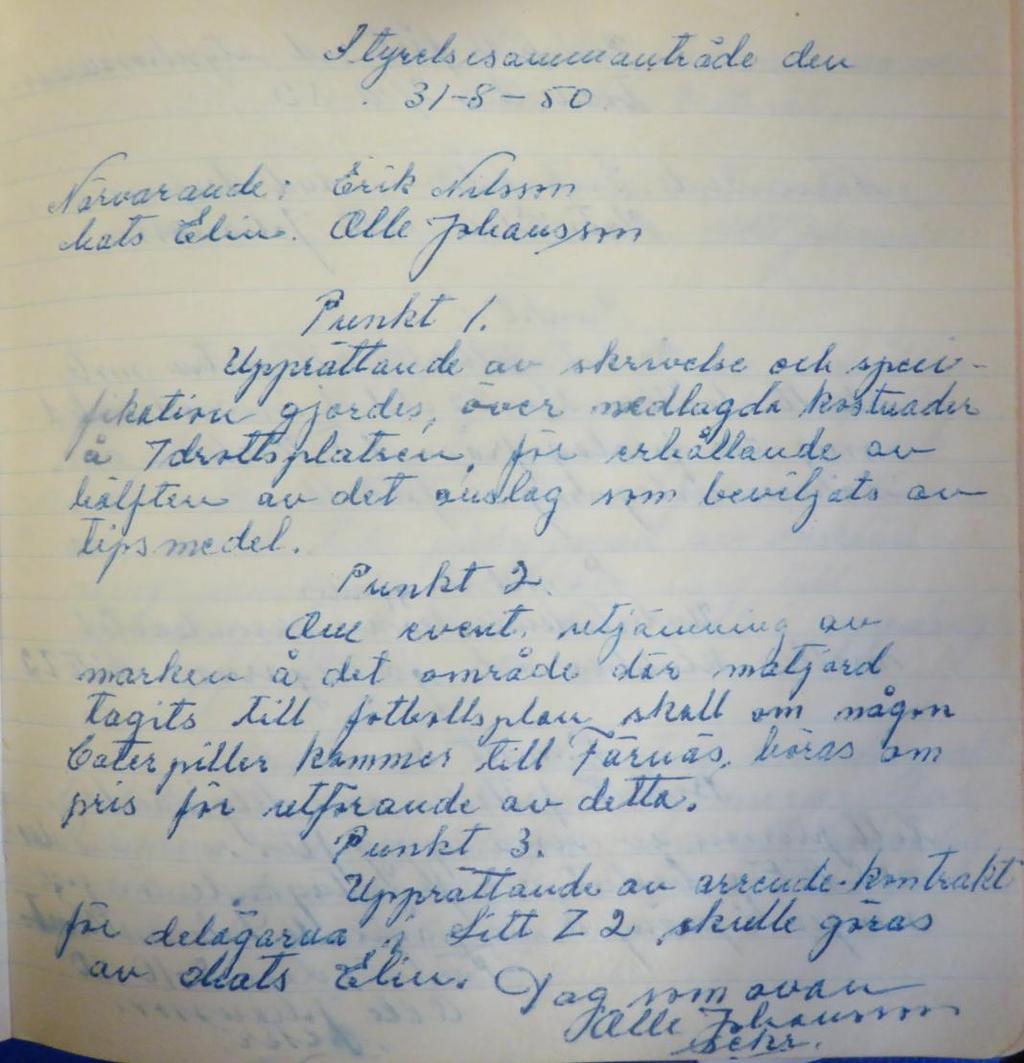 Styrelsesammanträde den
31-8-50
Närvarande: Erik Nilsson
Mats Elin. Olle Johansson
Punkt 1.
Upprättande av skrivelse och speci-
fikation gjordes, över nedlagda kostnader
å Idrottsplatsen, för erhållande av
hälften av det anslag som beviljats av
tipsmedel.
Punkt 2.
Om event. utjämning av
marken å det område där matjord
tagits till fotbollsplan, skall om någon
Caterpiller kommer till Färnäs, höras om
pris för utförande av detta.
Punkt 3.
Upprättande av arrende-kontrakt
för delägarna i Litt Z 2 skulle göras
av Mats Elin. Dag som ovan
Olle Johansson
sekr.